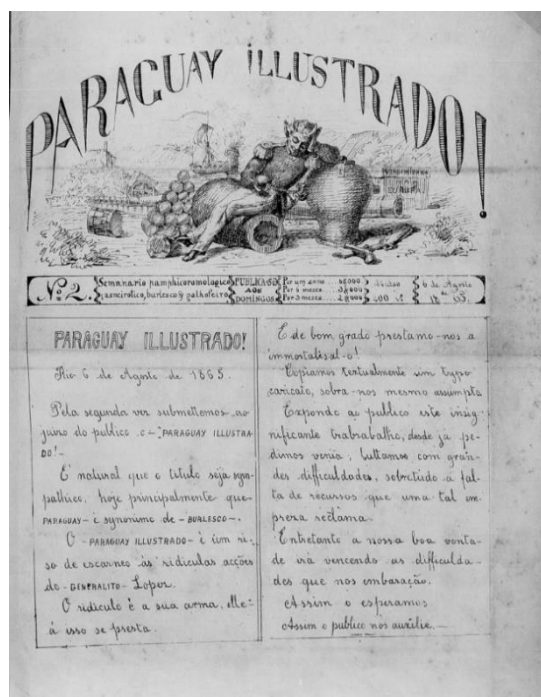 PARAGUAY ILLUSTRADO!
Nº 2.
Semanario pamphlioromologico
asneirotico, burlesco & galhofeiro
PUBLICA-SE
AOS
DOMINGOS
Por um anno
Por 6 mezes
Por 3 mezes
6 de Agosto
de
PARAGUAY ILLUSTRADO!
Rio 6 de Agosto de 1865.
Pela segunda vez submettemos ao
juizo do publico o - "PARAGUAY ILLUSTRA-
DO! -
É natural que o titulo seja sym-
pathico, hoje principalmente que
PARAGUAY - é synonimo de - BURLESCO -.
O - PARAGUAY ILLUSTRADO - é um ri-
so de escarneo ás ridiculas acções
do - GENERALITO - Lopez.
O ridiculo é a sua arma. Elle
á isso se presta.
E de bom grado prestamo-nos a
immortalisal-o!
Copiamos textualmente um typo
caricato, sobra-nos mesmo assumpto
Expondo ao publico este insig-
nificante trabrabalho, desde ja pe-
dimos venia, luttamos com gran-
des difficuldades, sobretudo a fal-
ta de recursos que uma tal em
preza reclama.
Entretanto a nossa boa vonta-
de irá vencendo as difficulda-
des que nos embaração.
Assim o esperamos
Assim o publico nos auxilie. -